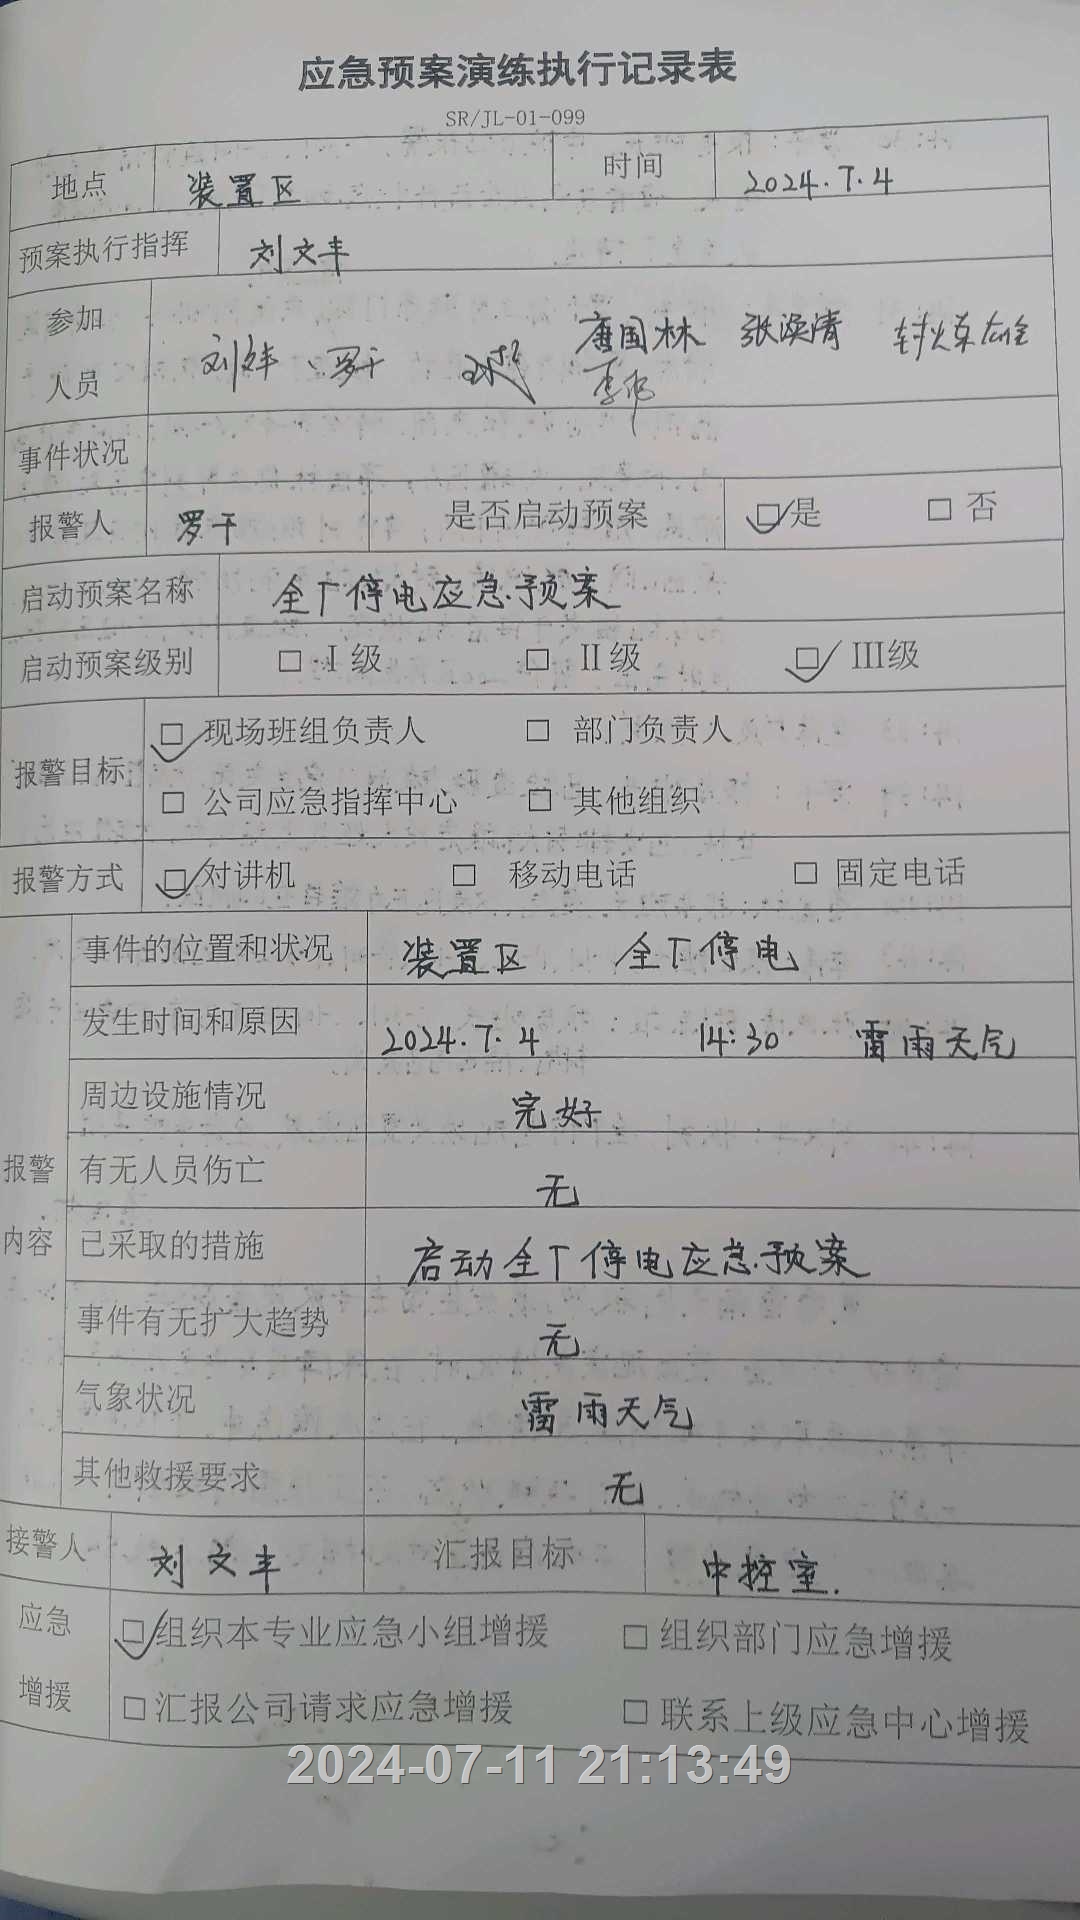 应急预案演练执行记录表
SR/JL-01-099
地点 装置区 时间 2024.7.4
预案执行指挥 刘文丰
参加人员 刘文丰 罗干 唐国林 张涣清
事件状况
报警人 罗干 是否启动预案 ☑是 □ 否
启动预案名称 全厂停电应急预案
启动预案级别 □ I级 □ II级 ☑ III级
报警目标 ☑ 现场班组负责人 □ 部门负责人
□ 公司应急指挥中心 □ 其他组织
报警方式 ☑对讲机 □ 移动电话 □ 固定电话
报警内容
事件的位置和状况 装置区 全厂停电
发生时间和原因 2024.7.4 14:30 雷雨天气
周边设施情况 完好
有无人员伤亡 无
已采取的措施 启动全厂停电应急预案
事件有无扩大趋势 无
气象状况 雷雨天气
其他救援要求 无
接警人 刘文丰 汇报目标 中控室.
应急增援 ☑组织本专业应急小组增援 □ 组织部门应急增援
□ 汇报公司请求应急增援 □ 联系上级应急中心增援
2024-07-11 21:13:49